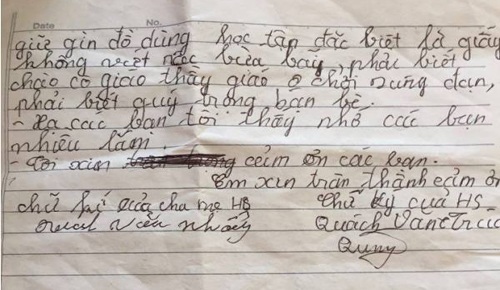 Date No.
giữ gìn đồ dùng học tập đặc biệt là giấy
không viết bừa bãy, phải biết
chào cô giáo thầy giáo o chơi dung đạn,
phải biết quý trong bạn bè.
- Xa các bạn tôi thấy nhớ các bạn
nhiều lắm.
- Tôi xin cảm ơn các bạn.
Em xin trân thành cảm ơ
chữ kí của cha mẹ HS Chữ ký của HS
Quách Văn
Quny